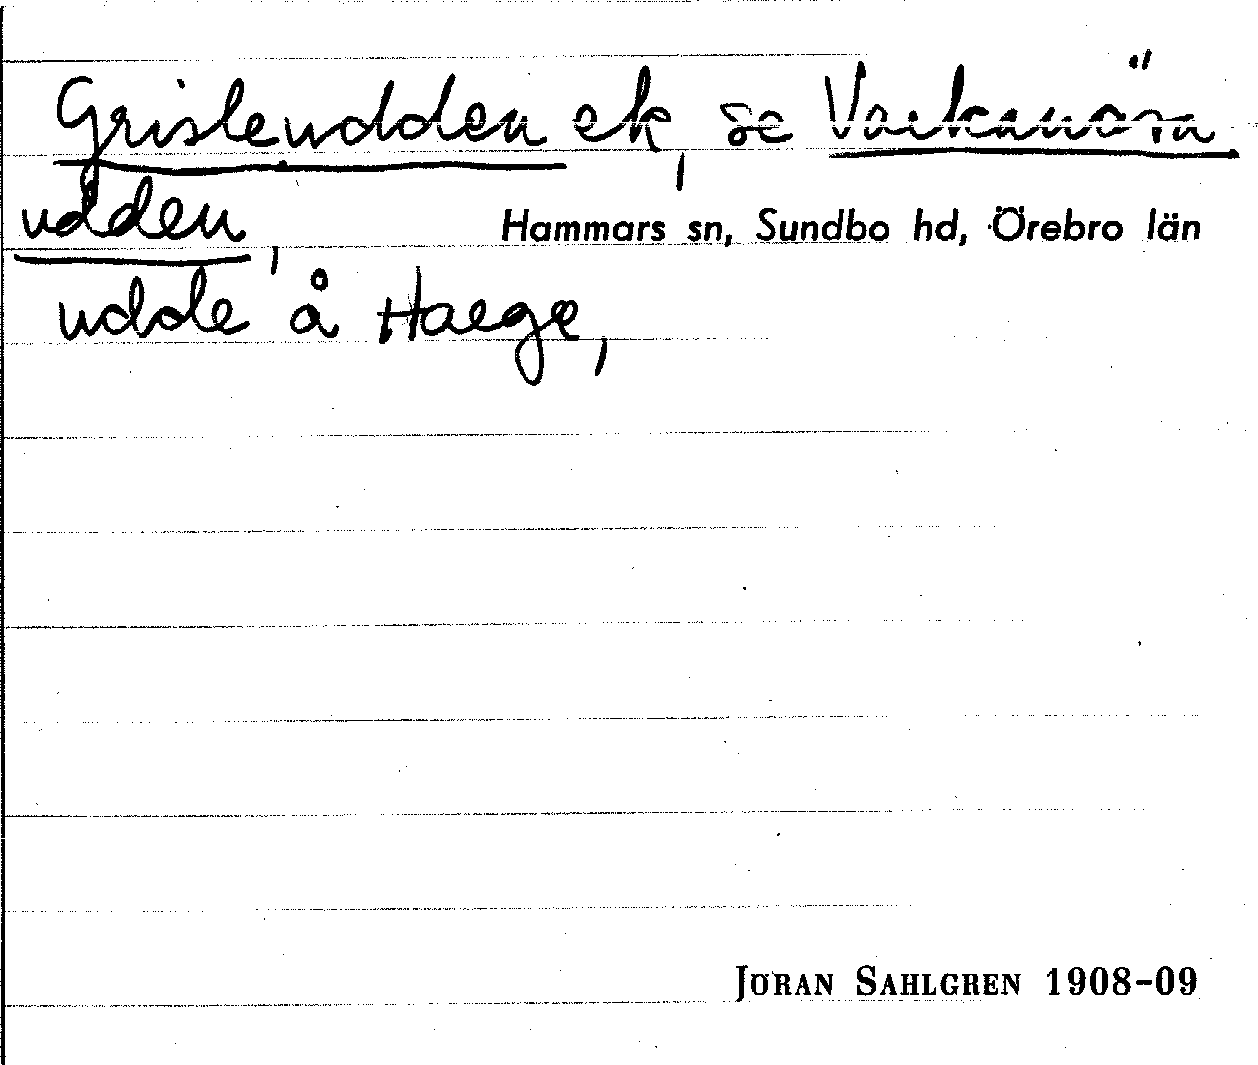 Grisleudden ek, se Varkanöra
udden,
Hammars sn, Sundbo hd, Örebro län
udde å Haege,
JÖRAN SAHLGREN 1908-09